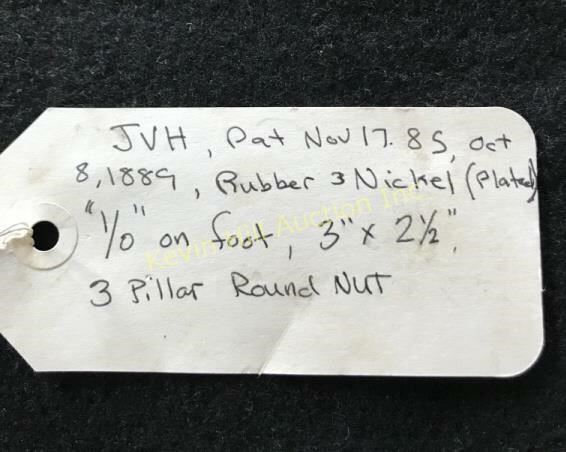 JVH, Pat Nov 17. 85, Oct
8, 1889, Rubber & Nickel (Plated)
"1/0" on foot, 3" x 2½",
3 Pillar Round Nut
Kevin Hill Auction Inc.